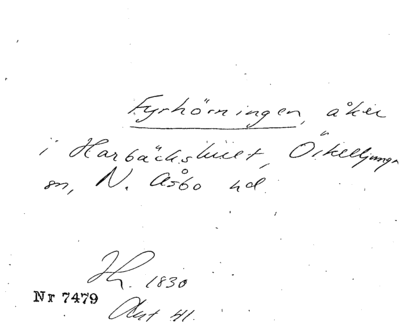 Fyrhörningen, åker
i Harbäckshult, Örkelljunga
sn, N. Åsbo hd
H. 1830
Nr 7479
Akt 41.